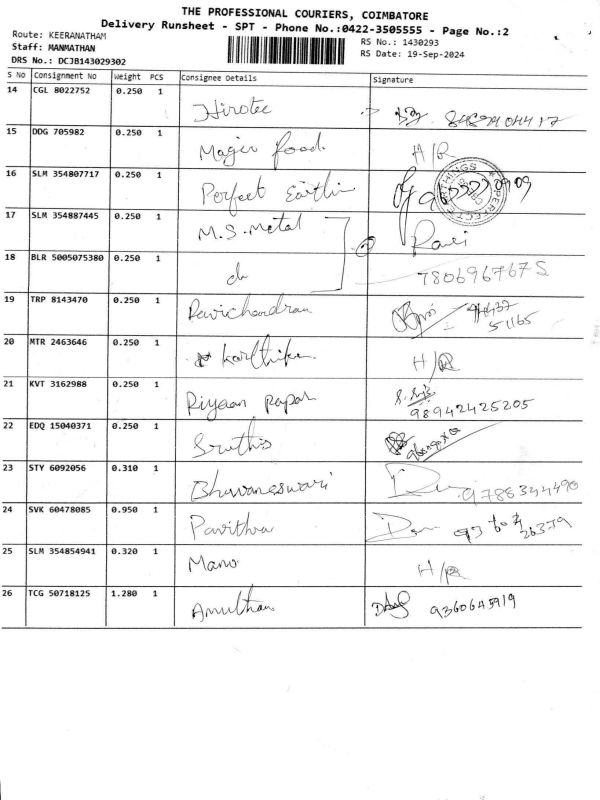 THE PROFESSIONAL COURIERS, COIMBATORE
Delivery Runsheet - SPT - Phone No.:0422-3505555 - Page No.:2
Route: KEERANATHAM
RS No.: 1430293
Staff: MANMATHAN
RS Date: 19-Sep-2024
DRS No.: DCJB143029302
S No Consignment No Weight PCS Consignee Details Signature
14 CGL 8022752 0.250 1 Hirotec
15 DDG 705982 0.250 1 Magic food H/R
16 SLM 354807717 0.250 1 Perfect
17 SLM 354887445 0.250 1 M.S. Metal Ravi
18 BLR 5005075380 0.250 1 do 7806967675
19 TRP 8143470 0.250 1 Ravichandran 94437 51165
20 MTR 2463646 0.250 1 Karthika H/R
21 KVT 3162988 0.250 1 Riyaan papar 98942425205
22 EDQ 15040371 0.250 1 Sruthis
23 STY 6092056 0.310 1 Bhuvaneswari 9788344490
24 SVK 60478085 0.950 1 Pavithra 26379
25 SLM 354854941 0.320 1 Mano H/R
26 TCG 50718125 1.280 1 Amuthan 9360645919